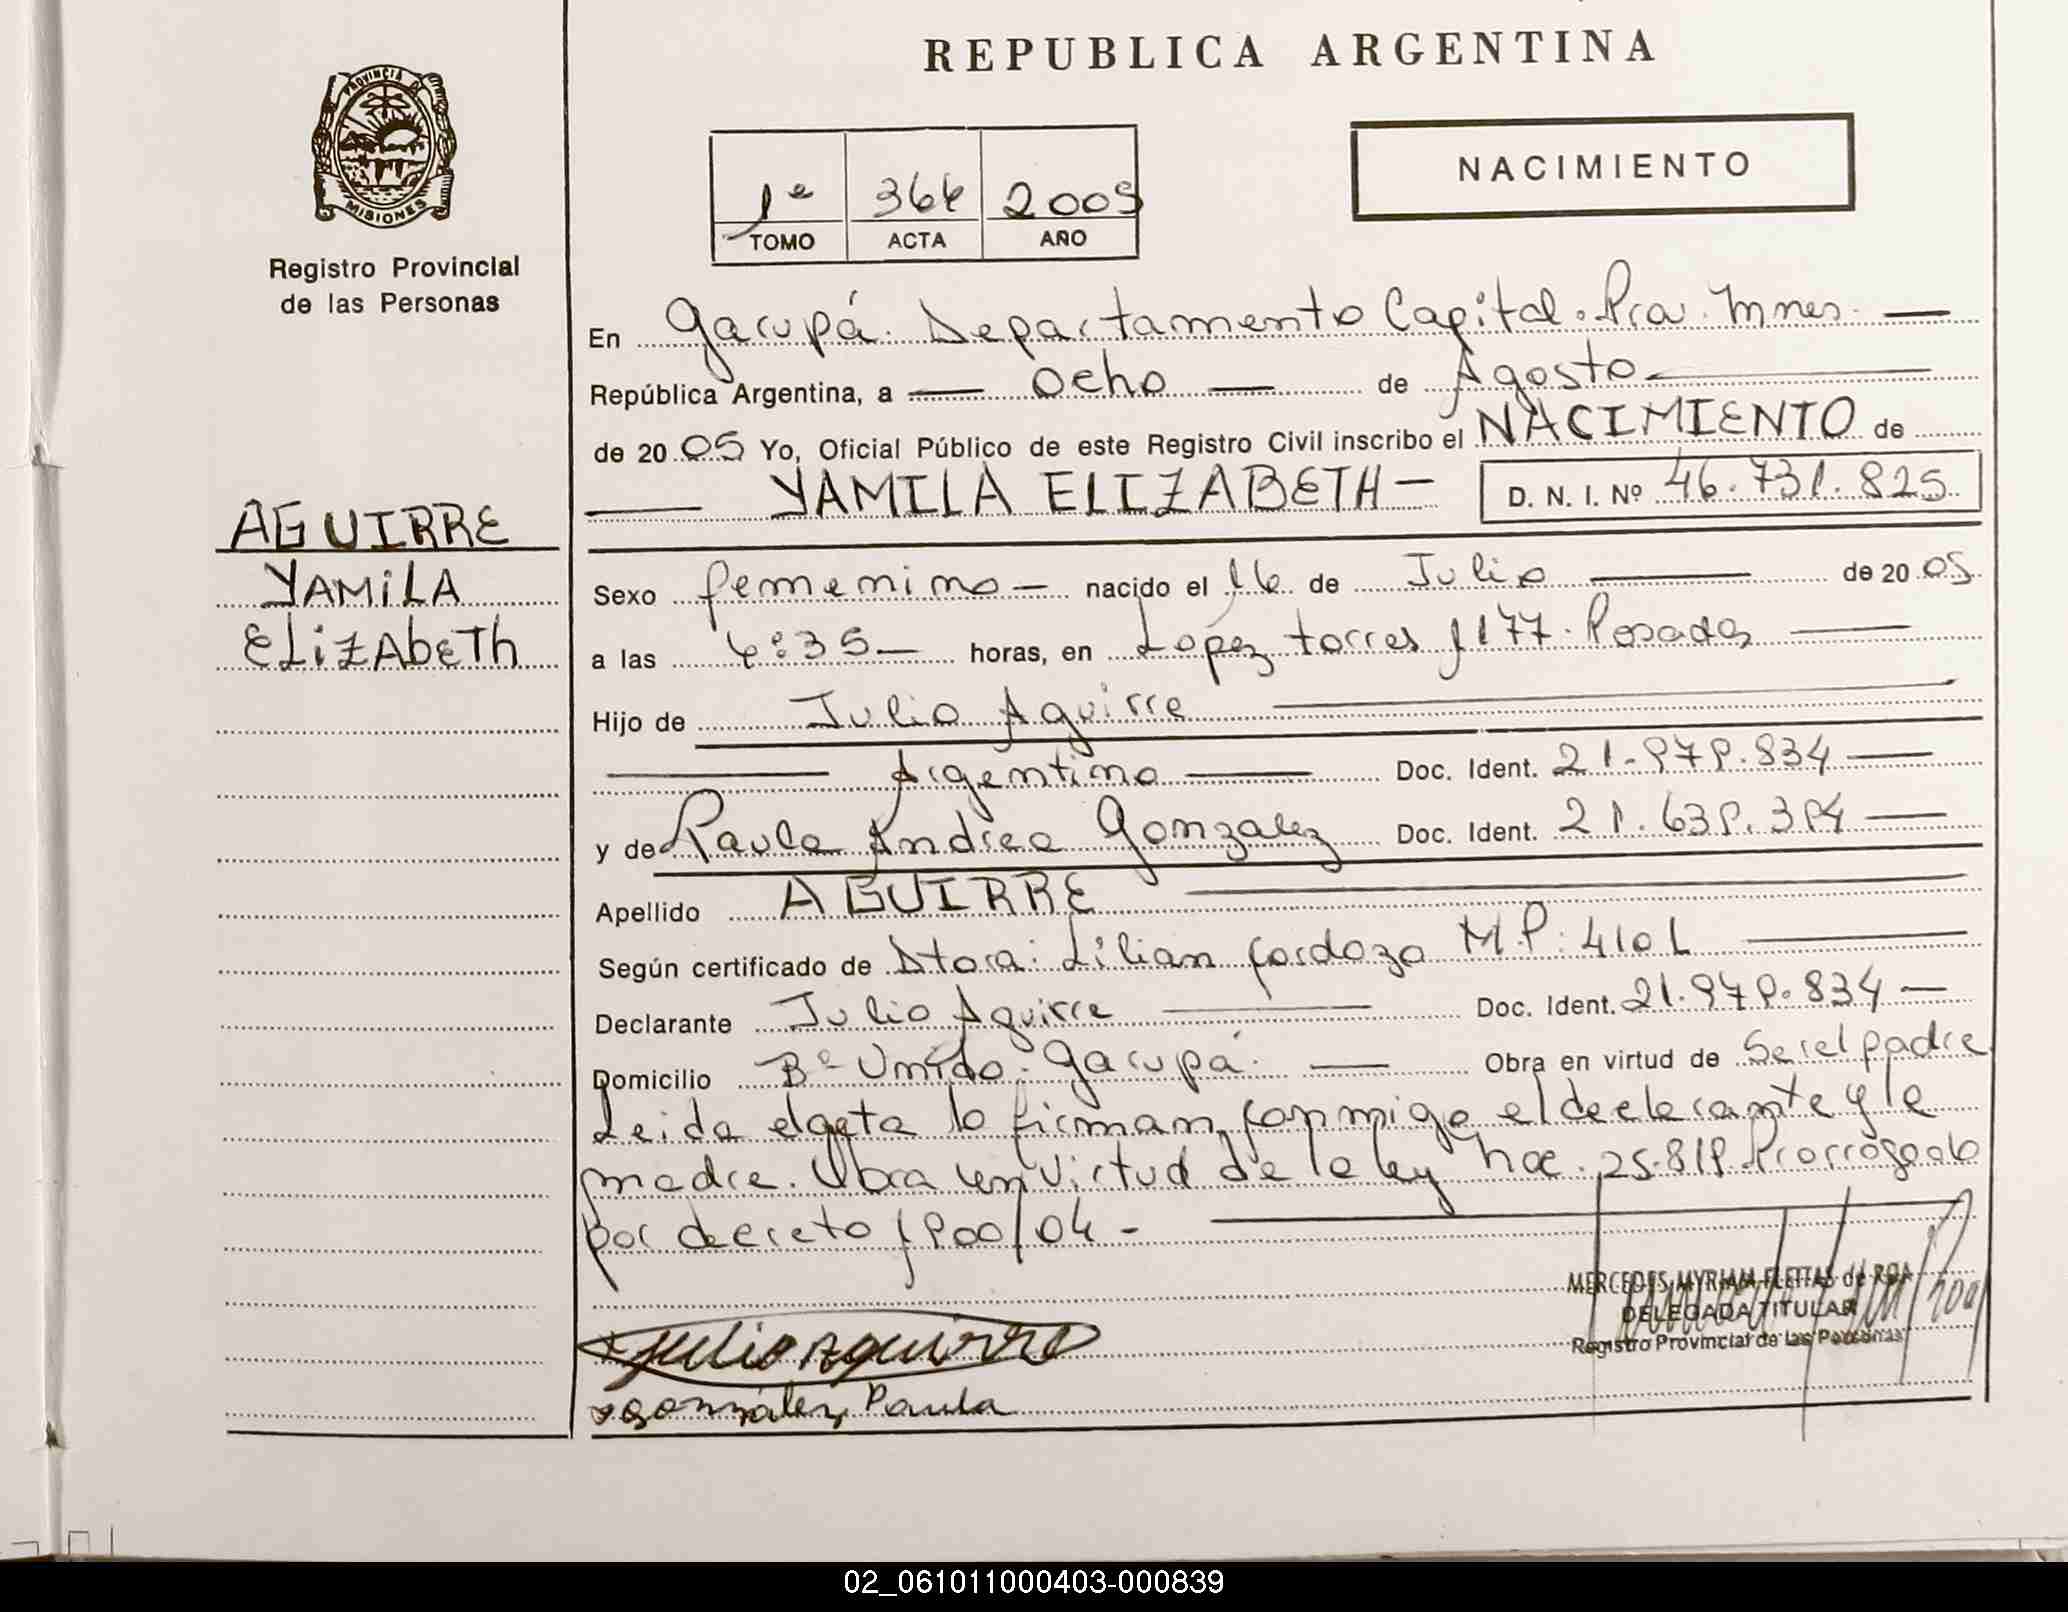 REPUBLICA ARGENTINA
PROVINCIA DE
MISIONES
Registro Provincial
de las Personas
NACIMIENTO
1º 364 2005
TOMO ACTA AÑO
En Garupá. Departamento Capital. Pcia. Mnes.
República Argentina, a ocho de Agosto
de 2005 Yo, Oficial Público de este Registro Civil inscribo el NACIMIENTO de
YAMILA ELIZABETH - D. N. I. Nº 46.731.825
AGUIRRE
YAMiLA
ELiZAbETh
Sexo femenino - nacido el 16 de Julio de 2005
a las 4:35 horas, en Lopez torres 1177. Posadas
Hijo de Julio Aguirre
Argentino Doc. Ident. 21.979.834
y de Paula Andrea Gonzalez Doc. Ident. 21.639.394
Apellido AGUIRRE
Según certificado de Dtora: Lilian Cardozo M.P: 410L
Declarante Julio Aguirre Doc. Ident. 21.979.834
Domicilio Bº Unido. Garupá. Obra en virtud de Ser el padre
Leida el acta lo firman conmigo el declarante y la
madre. Obra en virtud de la ley nro. 25.819 Prorrogado
por decreto 1900/04 -
MERCEDES MYRIAM FLEITAS de ROA
DELEGADA TITULAR
Registro Provincial de las Personas
Julio Aguirre
Gonzalez Paula
02_061011000403-000839